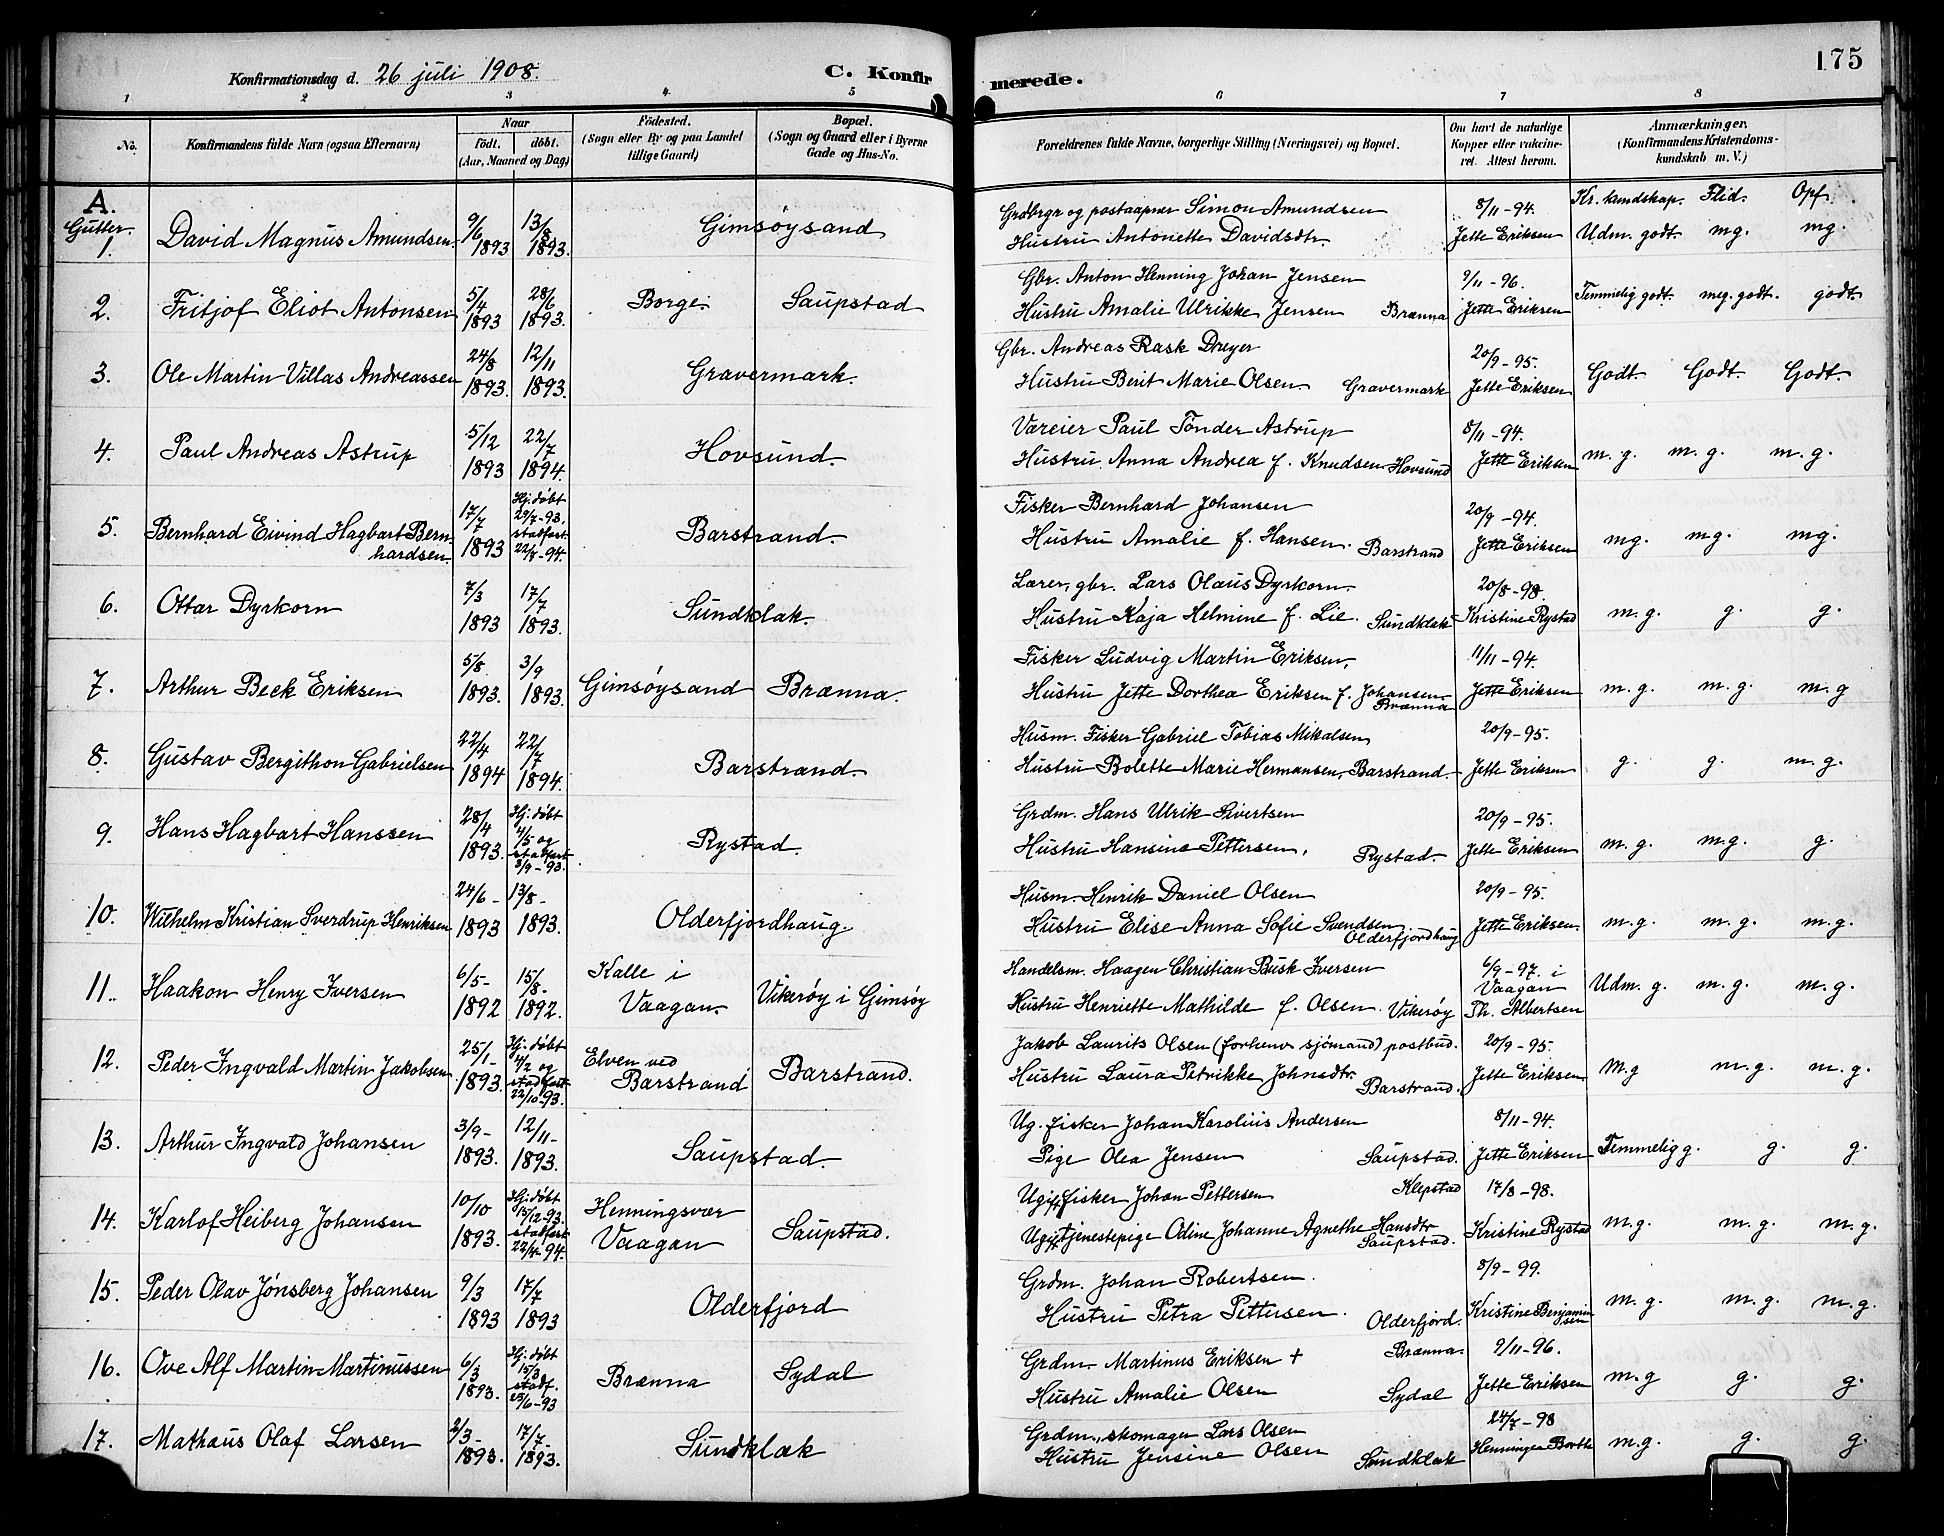 175
Konfirmationsdag d. 26 juli 1908.
C. Konfirmerede.
1 2 3 4 5 6 7 8
No.
Konfirmandens fulde Navn (ogsaa Efternavn)
Naar
født. døbt.
(Aar, Maaned og Dag)
Fødested.
(Sogn eller By og paa Landet
tillige Gaard)
Bopæl.
(Sogn og Gaard eller i Byerne
Gade og Hus-No.
Forældrenes fulde Navne, borgerlige Stilling (Næringsvei) og Bopæl.
Om havt de naturlige
Kopper eller vaccineret. Attest herom.
Anmærkninger.
(Konfirmandens Kristendomskundskab m. V.)
A.
Gutter.
Kr. kundskap. Flid. Opf.
1. David Magnus Amundsen 9/6 1893 13/8 1893. Gimsøysand
Grdbrgr og postaapner Simon Amundsen 8/11-94.
Hustru Antonette Davidsdtr. Jette Eriksen Udm. godt. mg. mg.
2. Fritjof Eliot Antonsen 5/4 1893 28/6 1893. Borge. Saupstad
Gbr. Anton Henning Johan Jensen 9/11-96.
Hustru Amalie Ulrikke Jensen Brænna Jette Eriksen Temmelig godt. meg. godt. godt.
3. Ole Martin Villas Andreassen 24/8 1893. 12/11 1893. Gravermark.
Gbr. Andreas Rask Dreyer 20/9-95.
Hustru Berit Marie Olsen. Gravermark Jette Eriksen Godt. Godt. Godt.
4. Paul Andreas Astrup 5/12 1893 22/7 1894. Hovsund.
Væreier Paul Tønder Astrup 8/11-94.
Hustru Anna Andrea f. Knudsen Hovsund Jette Eriksen m. g. m. g. m. g.
5. Bernhard Eivind Hagbart Bernhardsen. 17/7 1893 Hj. døbt 29/7-93. stadfæst. 22/7-94. Barstrand.
Fisker Bernhard Johansen 20/9-94.
Hustru Amalie f. Hansen. Barstrand Jette Eriksen mg. mg. mg.
6. Ottar Dyrkorn 7/3 1893 17/7 1893. Sundklak.
Lærer, gbr. Lars Olaus Dyrkorn. 20/8-98.
Hustru Kaja Helmine f. Lie. Sundklak Kristine Rystad m. g. g. g.
7. Arthur Beck Eriksen 5/8. 1893. 3/9 1893. Gimsøysand Brænna.
Fisker Ludvig Martin Eriksen, 11/11-94.
Hustru Jette Dorthea Eriksen f. Johansen. Brænna Jette Eriksen m. g. m. g. m. g
8. Gustav Bergithon Gabrielsen 22/4 1894 22/7 1894. Barstrand.
Husm. Fisker Gabriel Tobias Mikalsen 20/9-95.
Hustru Bolette Marie Hermansen, Barstrand. Jette Eriksen g. g. m. g.
9. Hans Hagbart Hanssen 28/4 1893. Hj. døbt 4/5 og stadfæst 3/9-93. Rystad.
Grdm. Hans Ulrik Sivertsen 20/9-95.
Hustru Hansine Pettersen, Rystad. Jette Eriksen m. g. m. g. g.
10. Wilhelm Kristian Sverdrup Henriksen 24/6- 1893 13/8- 1893. Olderfjordhaug.
Husm. Henrik Daniel Olsen 20/9-95.
Hustru Elise Anna Sofie Svendsen Olderfjordhaug Jette Eriksen. m. g. m. g. m. g.
11. Haakon Henry Iversen 6/5- 1892 15/8. 1892. Kalle i Vaagan. Vikerøy i Gimsøy
Handelsm. Haagen Christian Busk Iversen 6/9-97. i Vaagan
Hustru Henriette Mathilde f. Olsen. Vikerøy Th. Albertsen Udm. g. m. g. m. g.
12. Peder Ingvald Martin Jakobsen 25/1- 1893. Hj. døbt 4/2 og stadfæst. 22/10-93. Elven ved Barstrand Barstrand.
Jakob Laurits Olsen (forhenv sjømand) postbud. 20/9-95.
Hustru Laura Petrikke Johnsdtr. Barstrand. Jette Eriksen M.g m. g. m. g.
13. Arthur Ingvald Johansen 3/9- 1893. 12/11- 1893. Saupstad.
Ug. fisker Johan Karolius Andersen 8/11-94.
Pige Olea Jensen Saupstad. Jette Eriksen Temmelig g. g. g.
14. Karlof Heiberg Johansen 10/10 1893. Hj. døbt 15/12-93. stadfæst 22/4-94. Henningsvær Vaagan Saupstad.
Ugift fisker Johan Pettersen Klepstad 17/8-98.
Ugift tjenestepige Odine Johanne Agnethe Hansdtr Saupstad. Kristine Rystad m. g. m. g. m. g.
15. Peder Olav Jønsberg Johansen 9/3 1893 17/7 1893 Olderfjord
Grdm. Johan Robertsen. 8/9-99.
Hustru Petra Pettersen. Olderfjord. Kristine Benjaminsen m. g. m. g. m. g.
16. Ove Alf Martin Martinussen 6/3 1893. Hj. døbt 15/3 stadf. 25/6-93 Brænna Sydal
Grdm. Martinus Eriksen + Brænna. 9/11-96.
Hustru Amalie Olsen Sydal Jette Eriksen m. g g. g.
17. Mathæus Olaf Larsen 2/3- 1893. 17/7- 1893. Sundklak
Grdm., skomager Lars Olsen 24/7-98
Hustru Jensine Olsen Sundklak Henninger m. g. g. g.